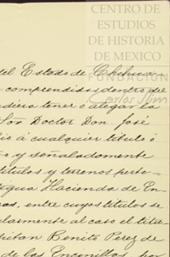 CENTRO DE
ESTUDIOS
DE HISTORIA
DE MEXICO
FUNDACIÓN
Carlos Slim
del Estado de Chihua-
comprendidos dentro que
diera tener ó alegar la
Señor Doctor Don José
lio á cualquier título ó
y señaladamente
títulos y terrenos perte-
tigua Hacienda de En-
as, entre cuyos títulos se
ularmente al caso el título
pitan Benito Perez de
de las Encinillas por